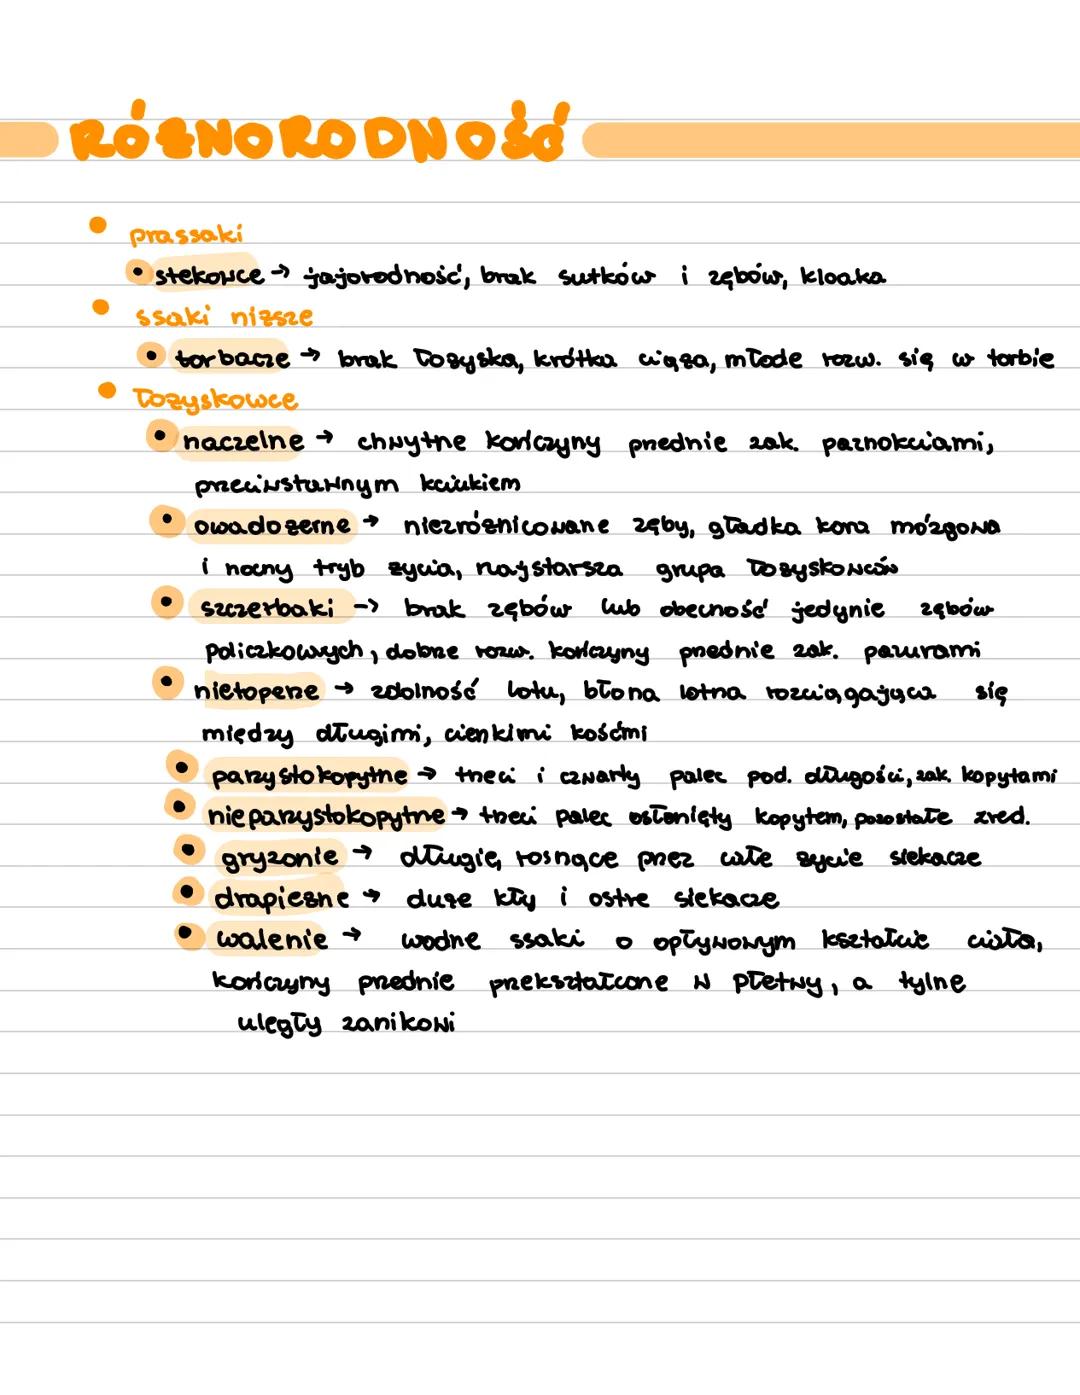 RÓŻNORODNOŚĆ
prassaki
stekowce → jajorodność, brak sutków i zębów, kloaka
ssaki niższe
torbacze → brak łożyska, krótka ciąża, młode rozw. się w torbie
łożyskowce
naczelne → chwytne kończyny przednie zak. paznokciami,
przeciwstawnym kciukiem
owadożerne → niezróżnicowane zęby, gładka kora mózgowa
i nocny tryb życia, najstarsza grupa łożyskowców
szczerbaki → brak zębów lub obecność jedynie zębów
policzkowych, dobrze rozw. kończyny przednie zak. pazurami
nietoperze → zdolność lotu, błona lotna rozciągająca się
między długimi, cienkimi kośćmi
parzystokopytne → trzeci i czwarty palec pod. długości, zak. kopytami
nieparzystokopytne → trzeci palec osłonięty kopytem, pozostałe zred.
gryzonie → długie, rosnące przez całe życie siekacze
drapieżne → duże kły i ostre siekacze
walenie → wodne ssaki o opływowym kształcie ciała,
kończyny przednie przekształcone w płetwy, a tylne
uległy zanikowi